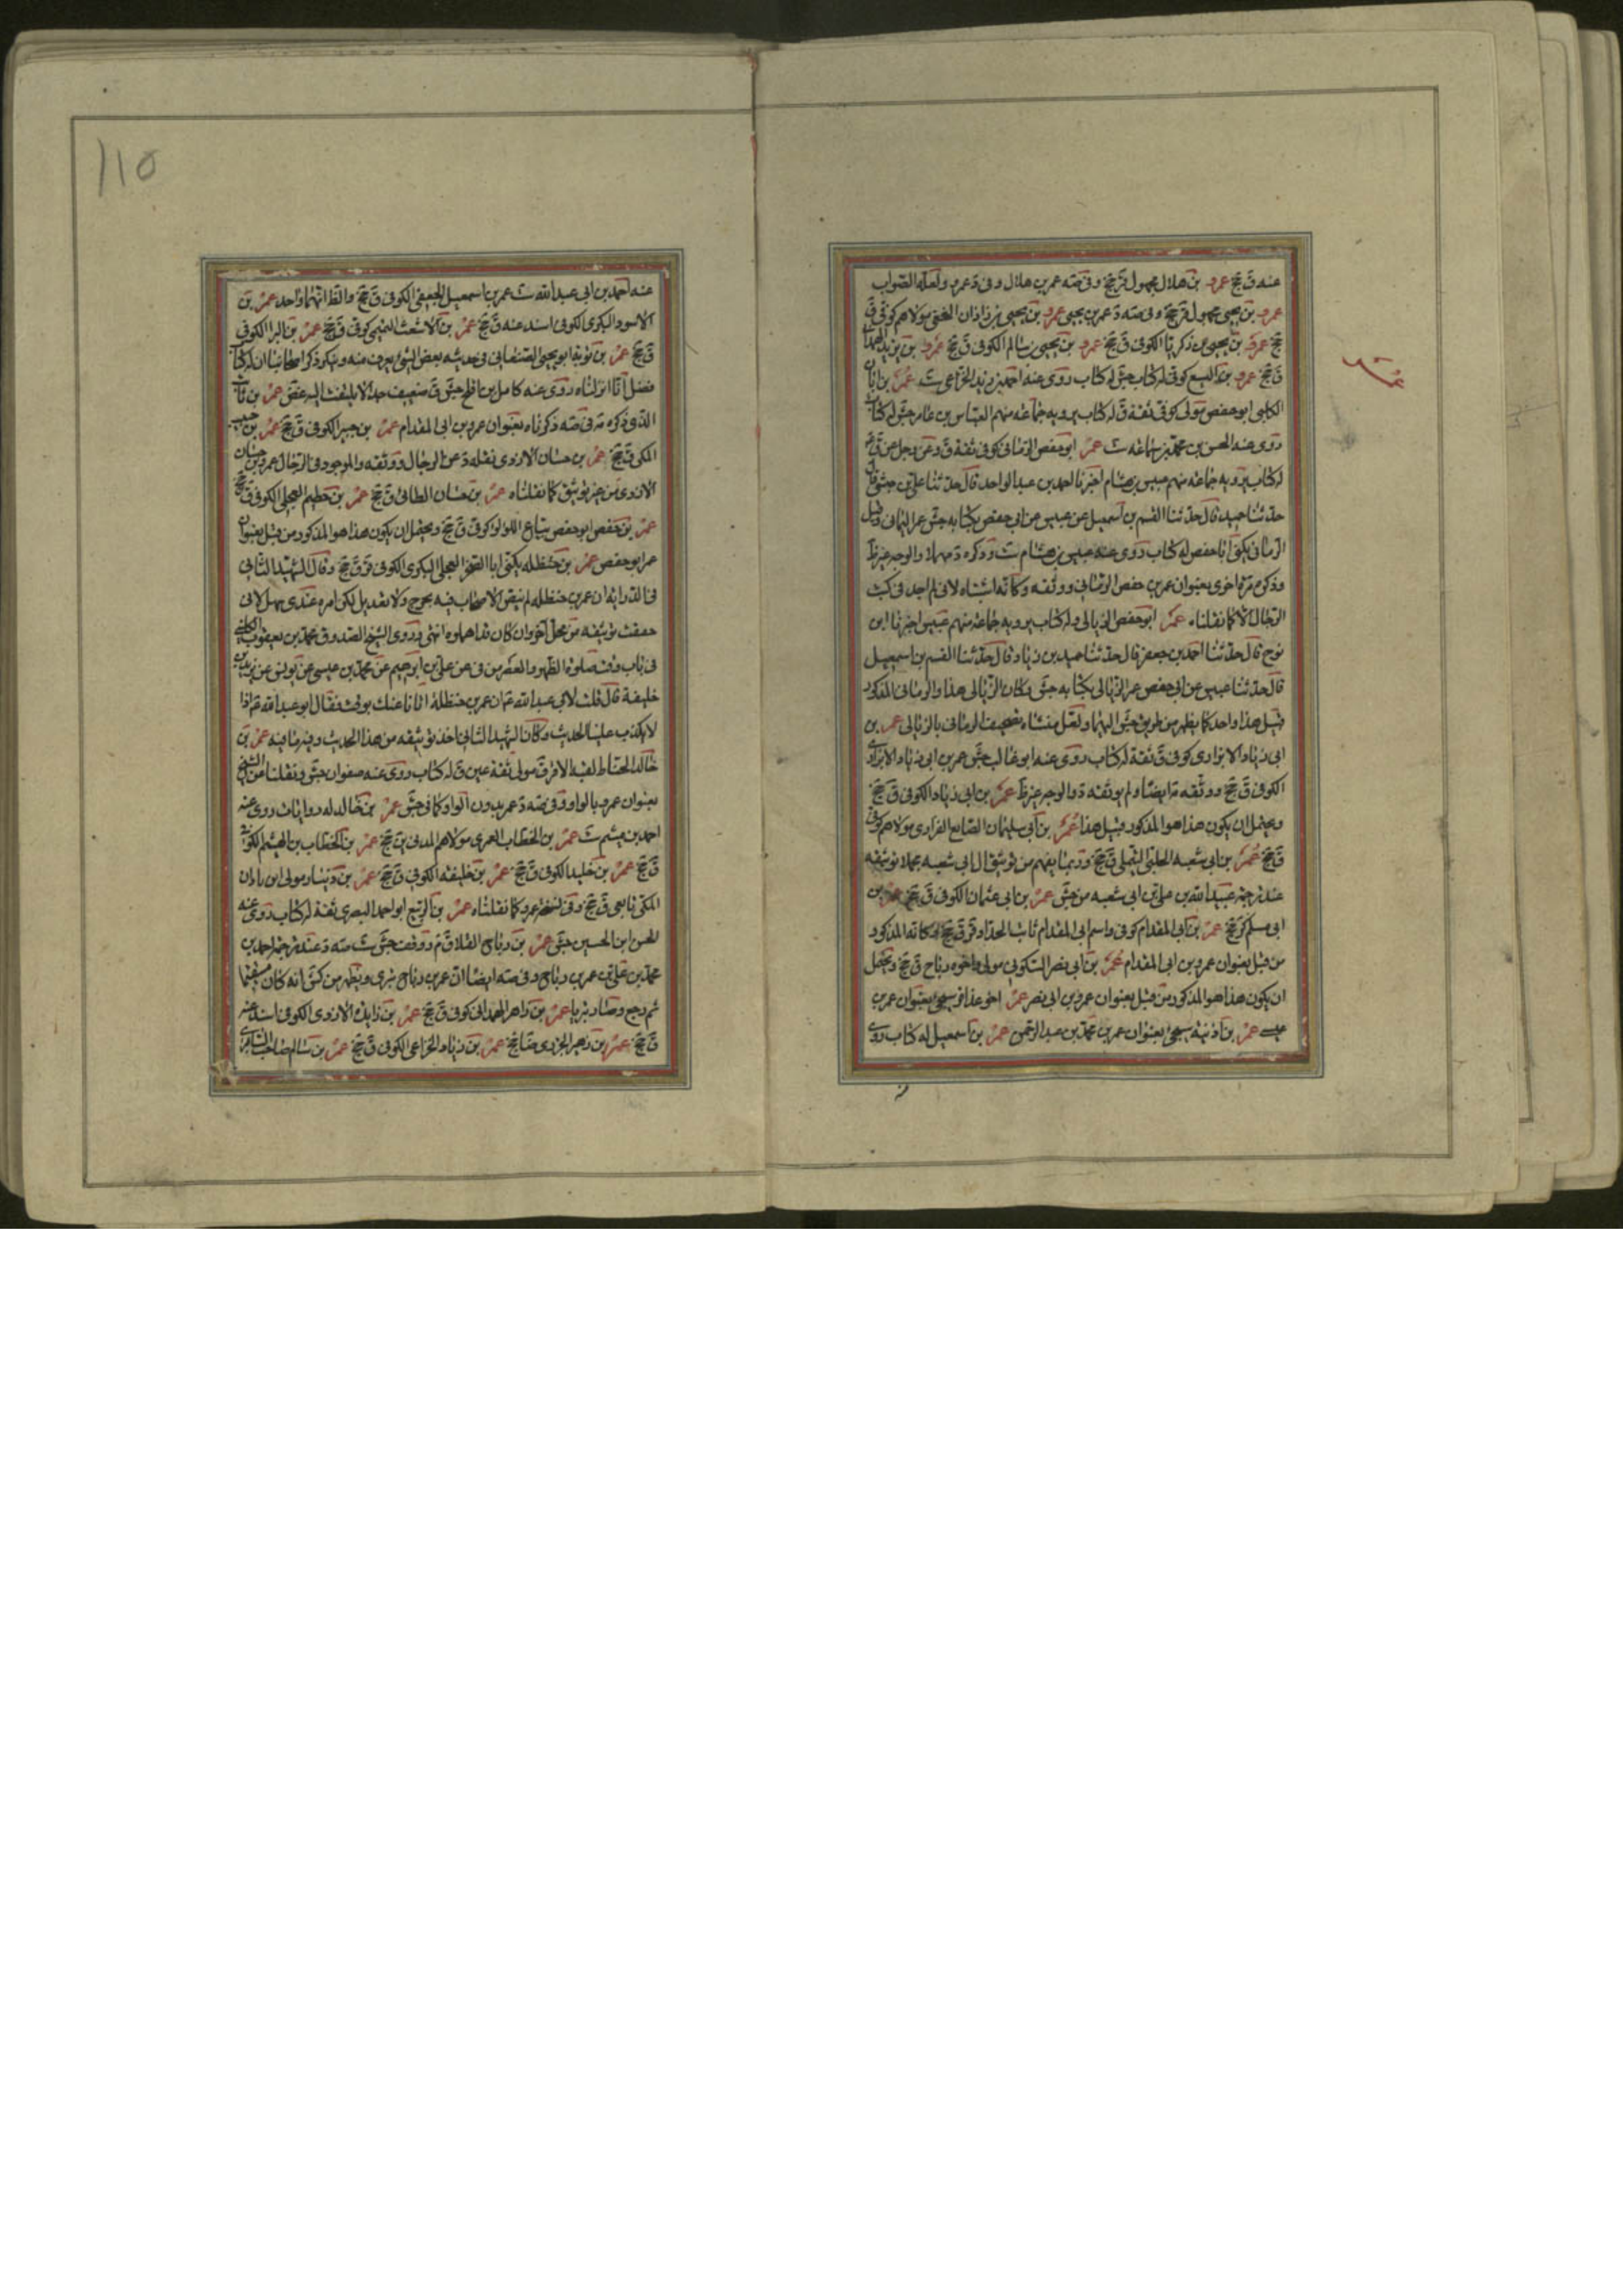 عنه ق جخ عمرو بن هلال مجهول قر جخ وفی صه عمر بن هلال وفی د عمرو ولعله الصواب
عمرو بن یحیی مجهول قر جخ وفی صه د عمر بن یحیی عمرو بن یحیی بن زاذان الخفی مولاهم کوفی ق
جخ عمرو بن یحیی بن زکریا الکوفی ق جخ عمرو بن یحیی بن سالم الکوفی ق جخ عمرو بن یزید
ق جخ عمرو بن الیسع کوفی له کتاب جش له کتاب روی عنه احمد بن زید الخزاعی ست عمر بن ابان
الکلبی ابو حفص مولی کوفی ثقة ق له کتاب یرویه جماعة منهم العباس بن عامر جش له کتاب
روی عنه الحسن بن محمد بن سماعة ست عمر ابو حفص الرمانی کوفی ثقة ق وعن رجل عن ق
له کتاب یرویه جماعة منهم عبیس بن هشام اخبرنا احمد بن عبد الواحد قال حدثنا علی بن حبشی قال
حدثنا حمید قال حدثنا القسم بن اسمعیل عن عبیس عن ابی حفص بکتابه جش عمر الیمانی وقیل
الرمانی یکنی ابا حفص له کتاب روی عنه عبیس بن هشام ست وذکره د مهملا والوجه غیر ظ
وذکره مرة اخری بعنوان عمر بن حفص الرمانی ووثقه وکانه اشتباه لانی لم اجد فی کتب
الرجال الا کما نقلناه عمر ابو حفص الزبالی وله کتاب یرویه جماعة منهم عبیس اخبرنا ابن
نوح قال حدثنا احمد بن جعفر قال حدثنا حمید بن زیاد قال حدثنا القسم بن اسمعیل
قال حدثنا عبیس عن ابی حفص عمر الزبالی بکتابه جش وکان الزبالی هذا والرمانی المذکور
قبیل هذا واحد کما یظهر من طریق جش الیهما ولعل منشاه تصحیف الرمانی بالزبالی عمر بن
ابی زیاد الابزاری کوفی ق ثقة له کتاب روی عنه ابو غالب جش عمر بن ابی زیاد الابزاری
الکوفی ق جخ ووثقه د ایضا ولم یوثقه د والوجه غیر ظ عمر بن ابی زیاد الکوفی ق جخ
ویحتمل ان یکون هذا هو المذکور قبیل هذا عمر بن ابی سلیمان الصایغ الفزاری مولاهم کوفی
ق جخ عمر بن ابی شعبه الحلبی ق جخ وربما یفهم من توثیق ال ابی شعبه مجملا توثیقه
عند ترجمة عبید الله بن علی بن ابی شعبه من جش عمر بن ابی عثمان الکوفی ق جخ عمر بن
ابی مسلم کر جخ عمر بن ابی المقدام کوفی واسم ابی المقدام ثابت الحداد قر ق جخ کانه المذکور
من قبل بعنوان عمرو بن ابی المقدام عمر بن ابی نصر السکونی مولی واخوه رباح ق جخ ویحتمل
ان یکون هذا هو المذکور من قبل بعنوان عمرو بن ابی نصر عمر اخو عذافر سیجئ بعنوان عمر بن
عیسی عمر بن اذینه سیجئ بعنوان عمر بن محمد بن عبد الرحمن عمر بن اسمعیل له کتاب روی
عنه احمد بن ابی عبد الله ست عمر بن اسمعیل الجعفی الکوفی ق جخ والظ انهما واحد عمر بن
الاسود البکری الکوفی اسند عنه ق جخ عمر بن الاشعث التیمی کوفی ق جخ عمر بن البرا الکوفی
ق جخ عمر بن توبه ابو یحیی الصنعانی فی حدیثه بعض الشئ یعرف منه وینکر ذکر اصحابنا ان له کتاب
فضل انا انزلناه روی عنه کامل بن افلح جش ق ضعیف جدا لا یلتفت الیه غض عمر بن ثابت
الذی ذکره د فی صه ذکرناه بعنوان عمرو بن ابی المقدام عمر بن جبیر الکوفی ق جخ عمر بن حبیب
المکی ق جخ عمر بن حسان الازدی نقله د عن الرجال ووثقه والموجود فی الرجال عمرو بن حسان
الازدی من غیر توثیق کما نقلناه عمر بن حسان الطائی ق جخ عمر بن حطیم العجلی الکوفی ق جخ
عمر بن حفص ابو حفص بیاع اللؤلؤ کوفی ق جخ ویحتمل ان یکون هذا هو المذکور من قبل بعنوان
عمر ابو حفص عمر بن حنظله یکنی ابا الصخر العجلی البکری الکوفی قر ق جخ وقال الشهید الثانی
فی الدرایة ان عمر بن حنظله لم ینص الاصحاب فیه بجرح ولا تعدیل لکن امره عندی سهل لانی
حققت توثیقه من محل اخر وان کان قد اهملوه انتهی وروی الشیخ الصدوق محمد بن یعقوب الکلینی
فی باب وقت صلوة الظهر والعصر من فی عن علی بن ابرهیم عن محمد بن عیسی عن یونس عن یزید بن
خلیفة قال قلت لابی عبد الله ع ان عمر بن حنظلة اتانا عنک بوقت فقال ابو عبد الله ع اذا
لا یکذب علینا الحدیث وکان الشهید الثانی اخذ توثیقه من هذا الحدیث وفیه ما فیه عمر بن
خالد الحناط لقبه الافرق مولی ثقة عین ق له کتاب روی عنه صفوان جش ونقلنا عن
بعنوان عمرو بالواو وفی صه د عمر بدون الواو کما فی جش عمر بن خالد له روایات روی عنه
احمد بن میثم ست عمر بن الخطاب العمری مولاهم المدنی ین جخ عمر بن الخطاب بن الهیثم الکوفی
ق جخ عمر بن خلید الکوفی ق جخ عمر بن خلیفة الکوفی ق جخ عمر بن دینار مولی ابن باذان
المکی تابعی ق جخ وفی نسخة عمرو کما نقلناه عمر بن الربیع ابو احمد البصری ثقة له کتاب روی عنه
الحسن ابن الحسین جش عمر بن ریاح القلا ق م ووقف جش ست صه د عند ترجمة احمد بن
محمد بن علی بن عمر بن ریاح وفی صه ایضا ان عمر بن ریاح بتری ویظهر من کش انه کان مستقیما
ثم رجع وصار بتریا عمر بن زاهر الهمدانی کوفی ق جخ عمر بن زایدة الازدی الکوفی اسند عنه
ق جخ عمر بن زهیر الجزری ق جخ عمر بن زیاد الخزاعی الکوفی ق جخ عمر بن سالم صاحب السابری
عمر بن